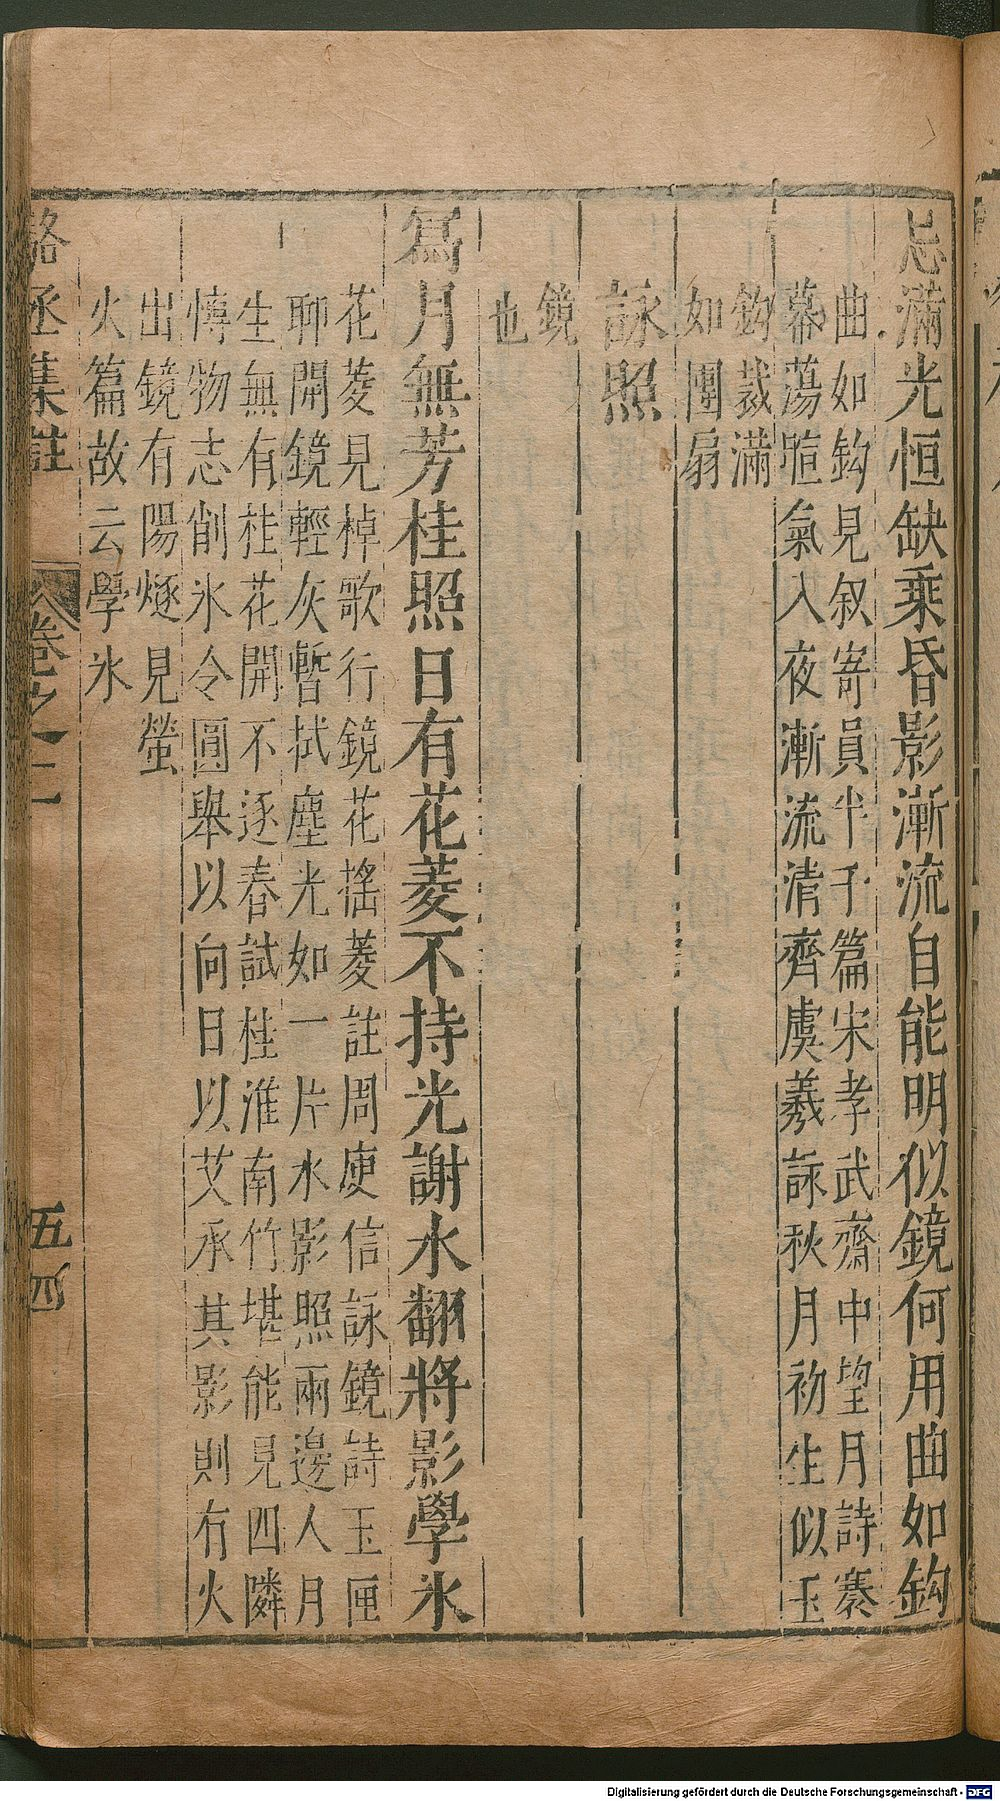 忌滿光恒缺乘昏影漸流自能明似鏡何用曲如鈎
曲如鈎見叙寄員半千篇宋孝武齋中望月詩褰
幕蕩暄氣入夜漸流清齊虞羲詠秋月初生似玉
鈎裁滿
如團扇
詠照
鏡
也
爲月無芳桂照日有花菱不持光謝水翻將影學氷
花菱見棹歌行鏡花搖菱註周庾信詠鏡詩玉匣
聊開鏡輕灰暫拭塵光如一片水影照兩邊人月
生無有桂花開不逐春試桂淮南竹堪能見四隣
慱物志削氷令圓舉以向日以艾承其影則有火
出鏡有陽燧見螢
火篇故云學氷
駱丞集註 卷之二 五四
Digitalisierung gefördert durch die Deutsche Forschungsgemeinschaft - DFG